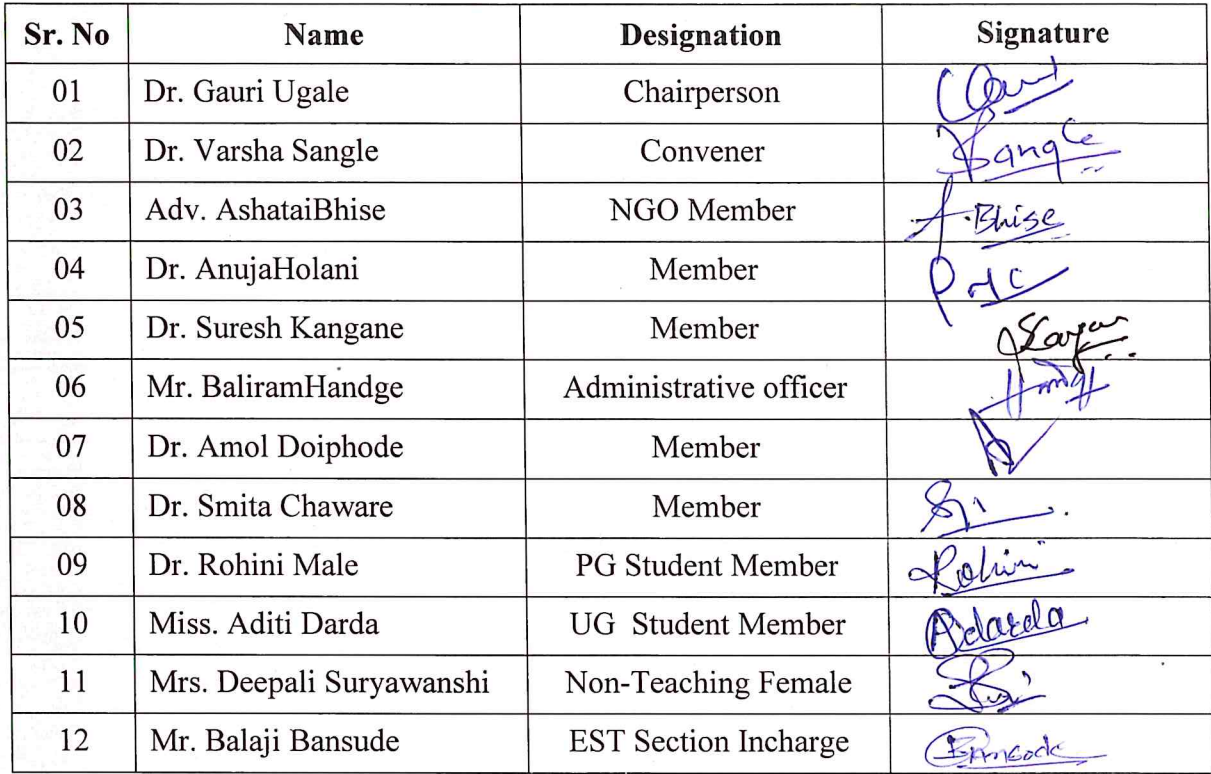 Sr. No Name Designation Signature
01 Dr. Gauri Ugale Chairperson
02 Dr. Varsha Sangle Convener Sangle
03 Adv. AshataiBhise NGO Member A. Bhise
04 Dr. AnujaHolani Member
05 Dr. Suresh Kangane Member
06 Mr. BaliramHandge Administrative officer
07 Dr. Amol Doiphode Member
08 Dr. Smita Chaware Member
09 Dr. Rohini Male PG Student Member Rohini
10 Miss. Aditi Darda UG Student Member Adarda
11 Mrs. Deepali Suryawanshi Non-Teaching Female
12 Mr. Balaji Bansude EST Section Incharge